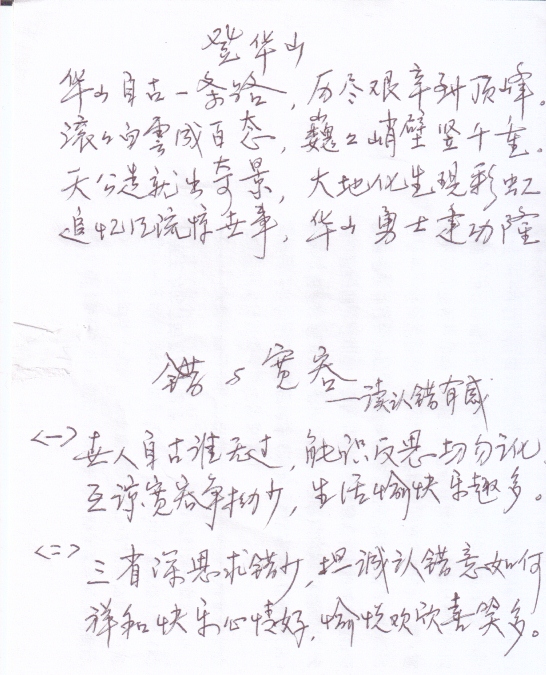 登华山
华山自古一条路，历尽艰辛到顶峰。
滚々白雲成百态，巍々峭壁竖千重。
天公造就出奇景，大地化生现彩虹
追忆风流惊世事，华山勇士建功隆
错与宽容
—读认错有感
<一>世人自古谁无过，能识反思切勿讹
互谅宽容争抄少，生活愉快乐趣多。
<二>三省深思求错少，坦诚认错意如何
祥和快乐心情好，愉悦欢欣喜笑多。